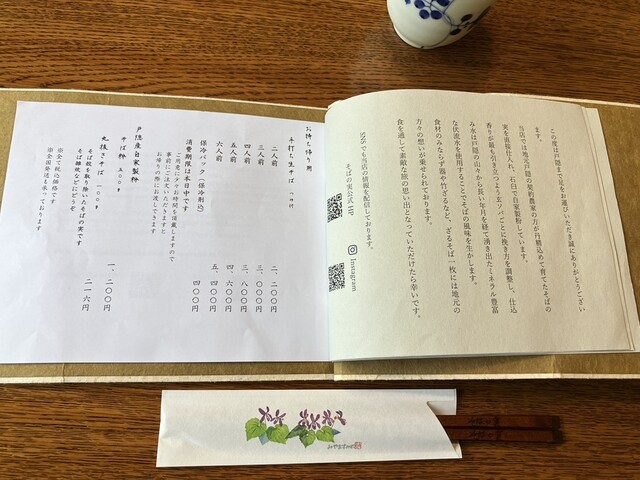 この度は戸隠まで足をお運びいただき誠にありがとうござい
ます。
当店では地元戸隠の契約農家の方が丹精込めて育てたそばの
実を直接仕入れ、石臼で自家製粉しています。
香りが最も引き立つよう玄ソバごとに挽き方を調整し、仕込
み水は戸隠の山々から長い年月を経て湧き出たミネラル豊富
な伏流水を使用することでそばの風味を生かします。
食材のみならず器や竹ざるなど、ざるそば一枚には地元の
方々の想いが乗せられております。
食を通して素敵な旅の思い出となっていただけたら幸いです。
SNSでも当店の情報を配信しております。
そばの実公式HP
Instagram
お持ち帰り用
手打ち生そば つゆ付
二人前 二、二〇〇円
三人前 三、〇〇〇円
四人前 三、八〇〇円
五人前 四、六〇〇円
六人前 五、四〇〇円
保冷パック（保冷剤込） 四〇〇円
消費期限は本日中です
ご用意に少々お時間を頂戴しますので
事前にご注文いただきますと
お帰りの際にお渡しできます
戸隠産自家製粉
そば粉 五〇〇g 一、二〇〇円
丸抜きそば 一〇〇g 二一六円
そば殻を取り除いたそばの実です
そば雑炊などにどうぞ
※全て税込価格です
※全国発送も承っております